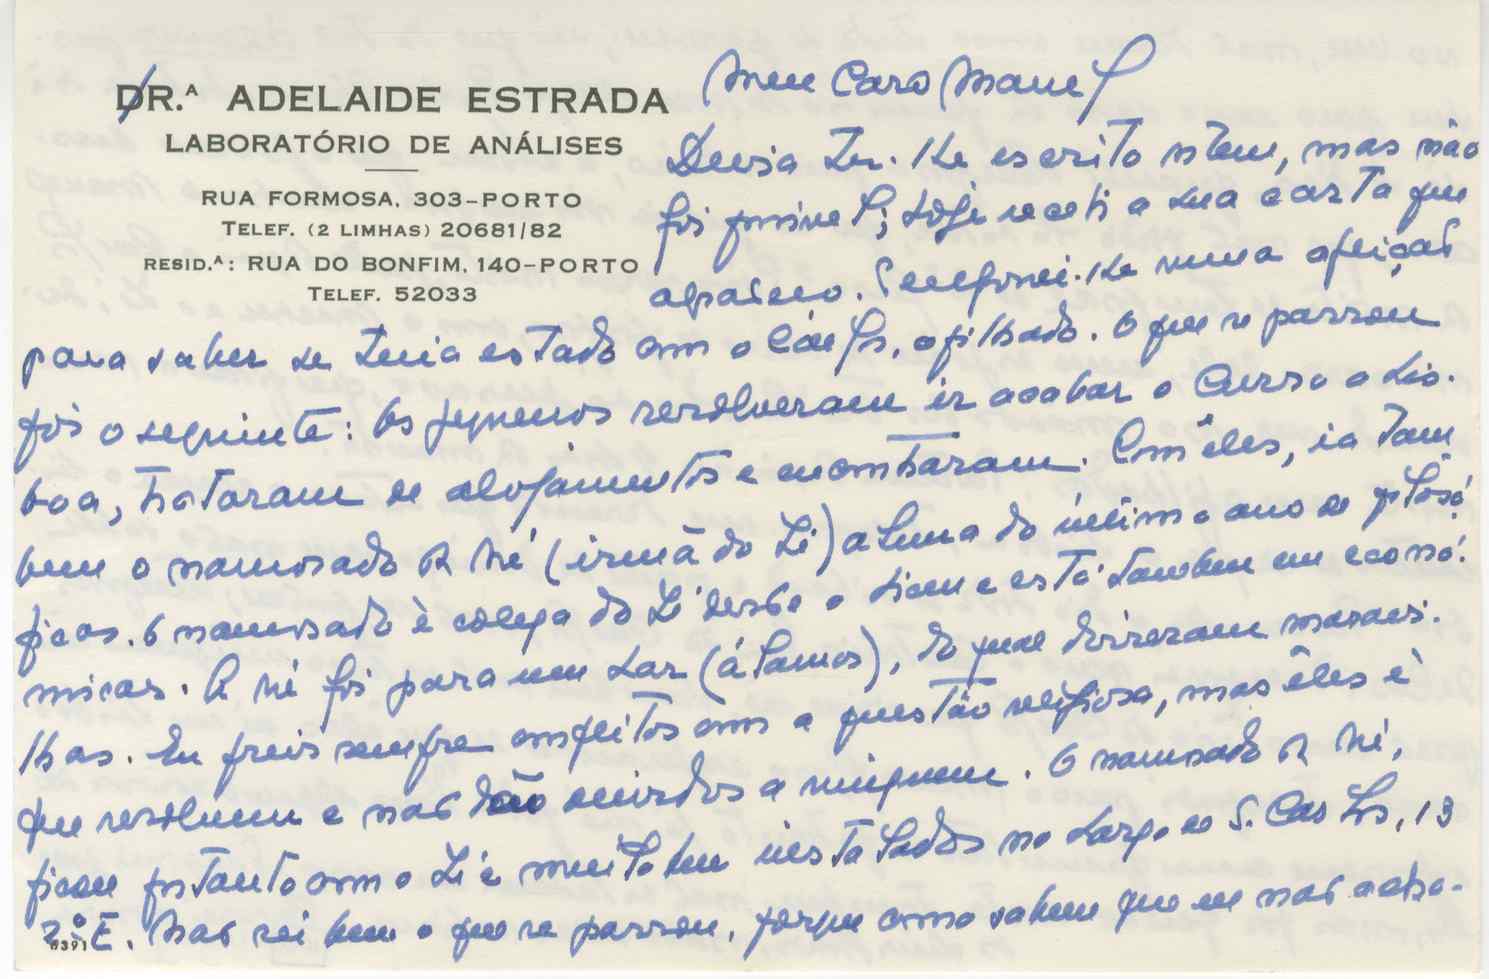 DR.ª ADELAIDE ESTRADA
LABORATÓRIO DE ANÁLISES
RUA FORMOSA, 303-PORTO
TELEF. (2 LIMHAS) 20681/82
RESID.ª: RUA DO BONFIM, 140-PORTO
TELEF. 52033
Meu Caro Manel
Devia ter-lhe escrito ontem, mas não
foi possivel; hoje recebi a sua carta que
agradeço. Telefonei-lhe numa aflição
para saber se teria estado com o Carlos, o filhado. O que se passou
foi o seguinte: Os pequenos resolveram ir acabar o Curso a Lis-
boa, trataram de alojamentos e encontraram. Com êles, ia tam-
bem o namorado da Né (irmã do Zé) aluna do último ano de filosó-
ficas. O namorado è colega do Zé desde o liceu e está tambem em econó-
micas. A Né foi para um Lar (álamos), do qual disseram maravi-
lhas. Eu puis sempre com a questão religiosa, mas êles è
que resolvem e não dão ouvidos a ninguem. O namorado da Né,
ficou portanto com o Zé e muito bem instalados no Largo de S. Carlos, 13
2º E. Não sei bem o que se passou, porque como sabem que eu não
0391